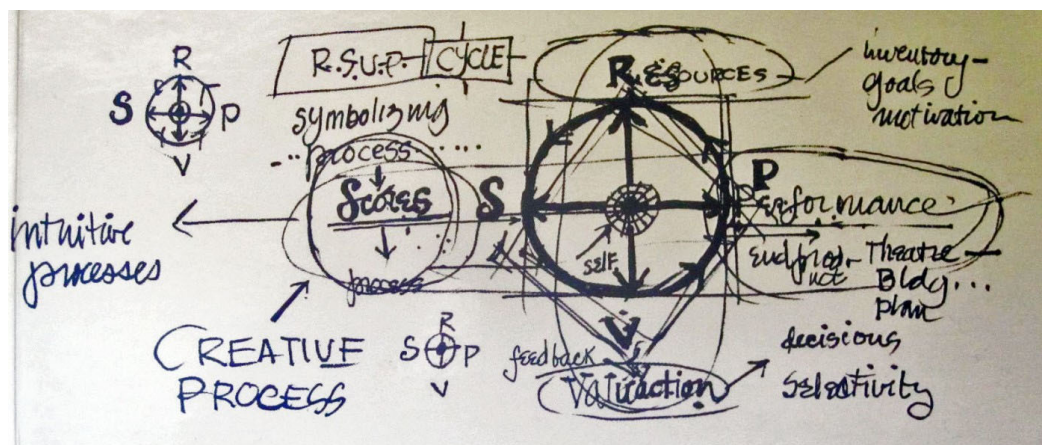 R
S P
V
R.S.V.P. CYCLE
RESOURCES
inventory-
goals
motivation
symbolizing
process
Scores
process
S
SELF
P
Performance
End prod-
uct
Theatre
Bldg...
plan
intuitive
processes
CREATIVE
PROCESS
R
S P
V
V
feedback
Valuaction
decisions
selectivity